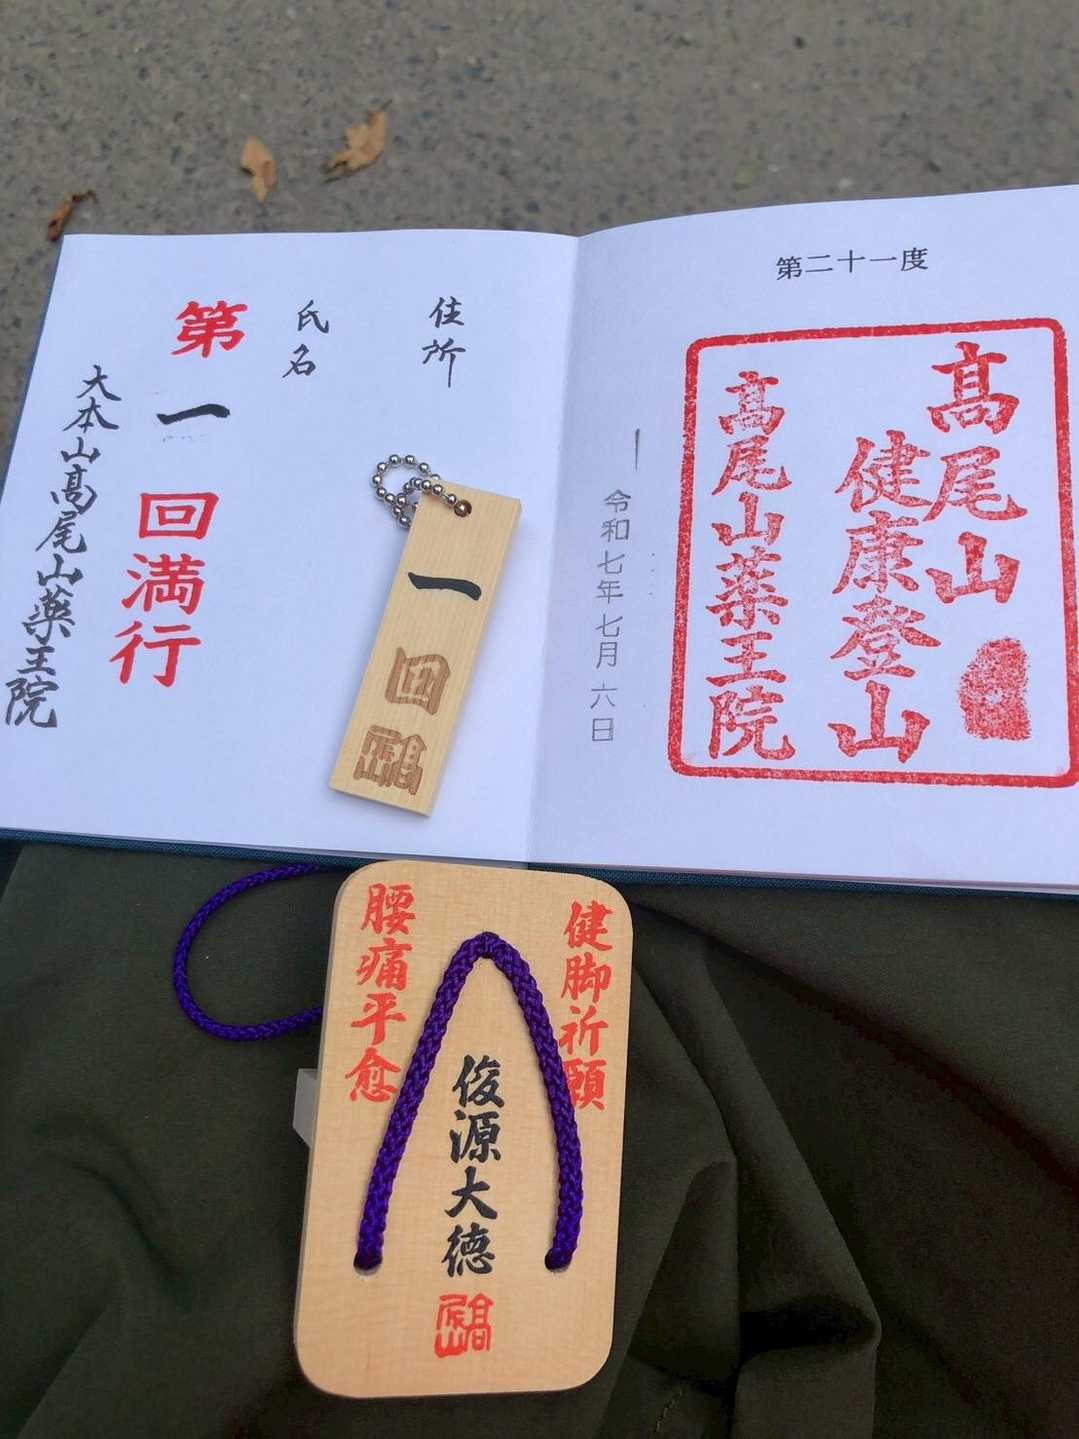 第二十一度
髙尾山
健康登山
髙尾山薬王院
令和七年七月六日
住所
氏名
第一回満行
大本山髙尾山薬王院
一回
髙尾山
健脚祈願
俊源大徳
髙尾山
腰痛平愈